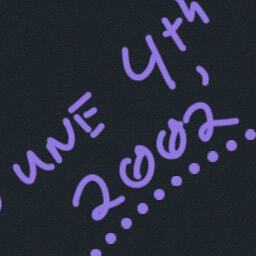 UNE 4th,
2002